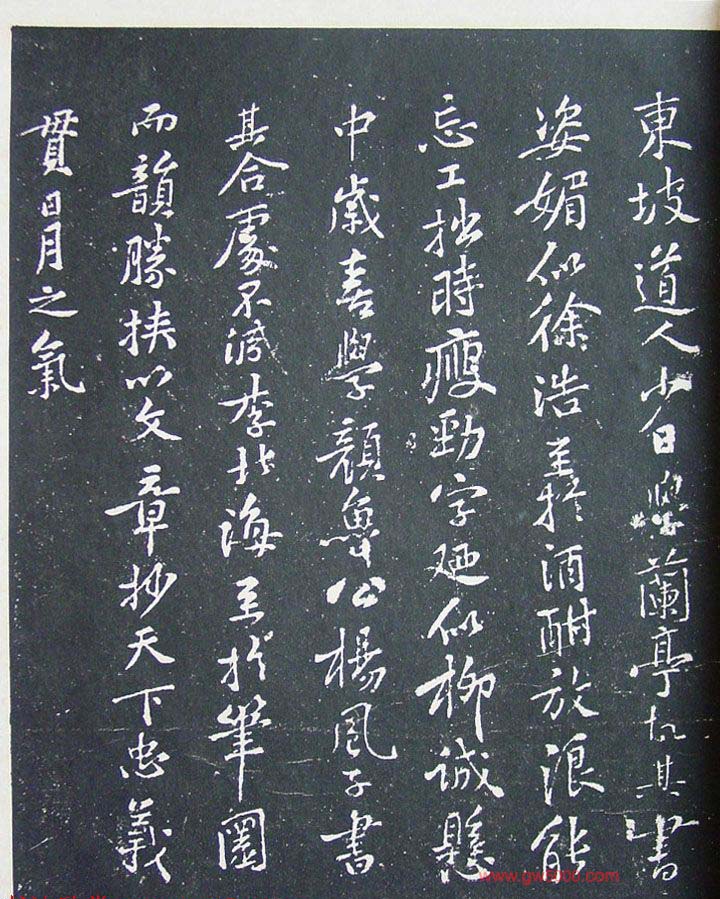 東坡道人少日學蘭亭故其書
姿媚似徐浩至於酒酣放浪能
忘工拙時瘦勁字廼似柳誠懸
中歲喜學顏魯公楊風子書
其合處不減李北海至於筆圜
而韻勝挾以文章妙天下忠義
貫日月之氣